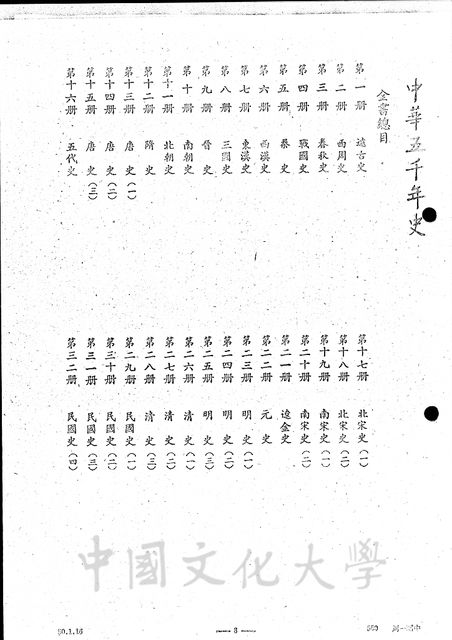 中華五千年史
全書總目
第一册 遠古史
第二册 西周史
第三册 春秋史
第四册 戰國史
第五册 秦史
第六册 西漢史
第七册 東漢史
第八册 三國史
第九册 晉史
第十册 南朝史
第十一册 北朝史
第十二册 隋史
第十三册 唐史(一)
第十四册 唐史(二)
第十五册 唐史(三)
第十六册 五代史
第十七册 北宋史(一)
第十八册 北宋史(二)
第十九册 南宋史(一)
第二十册 南宋史(二)
第二一册 遼金史
第二二册 元史
第二三册 明史(一)
第二四册 明史(二)
第二五册 明史(三)
第二六册 清史(一)
第二七册 清史(二)
第二八册 清史(三)
第二九册 民國史(一)
第三十册 民國史(二)
第三一册 民國史(三)
第三二册 民國史(四)
中國文化大學